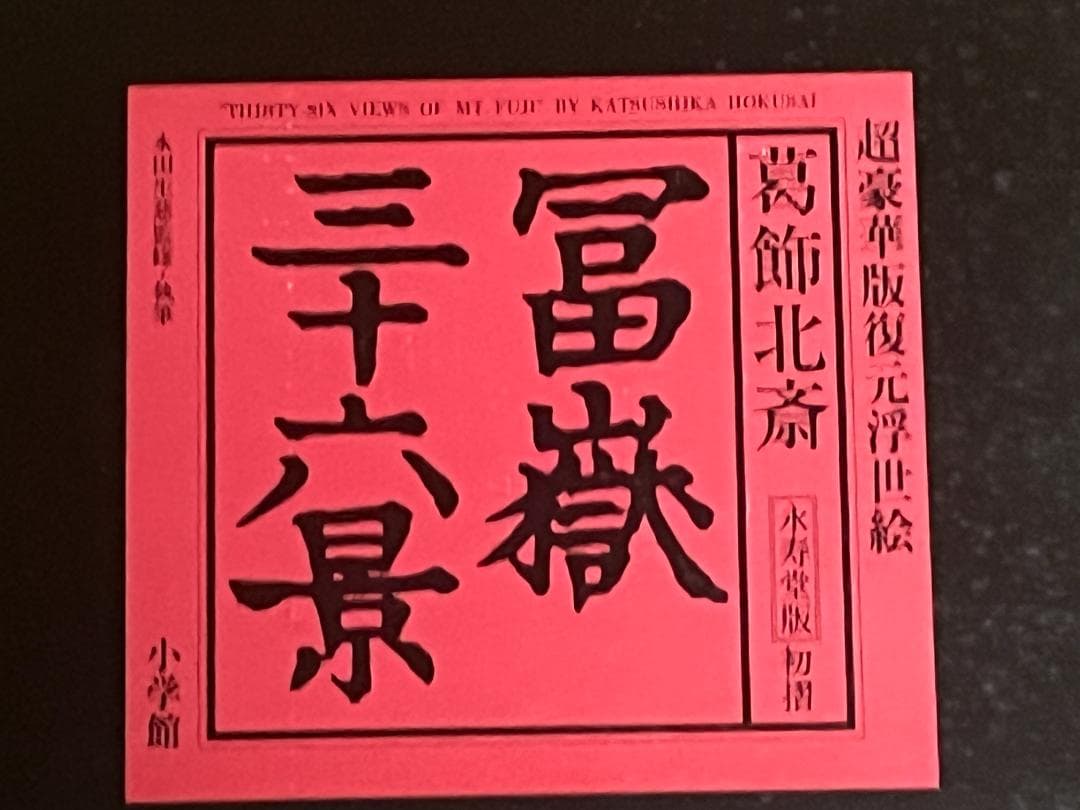 "THIRTY-SIX VIEWS OF MT FUJI" BY KATSUSHIKA HOKUSAI
超豪華版復元浮世絵
葛飾北斎
永寿堂版
初摺
冨嶽
三十六景
小学館